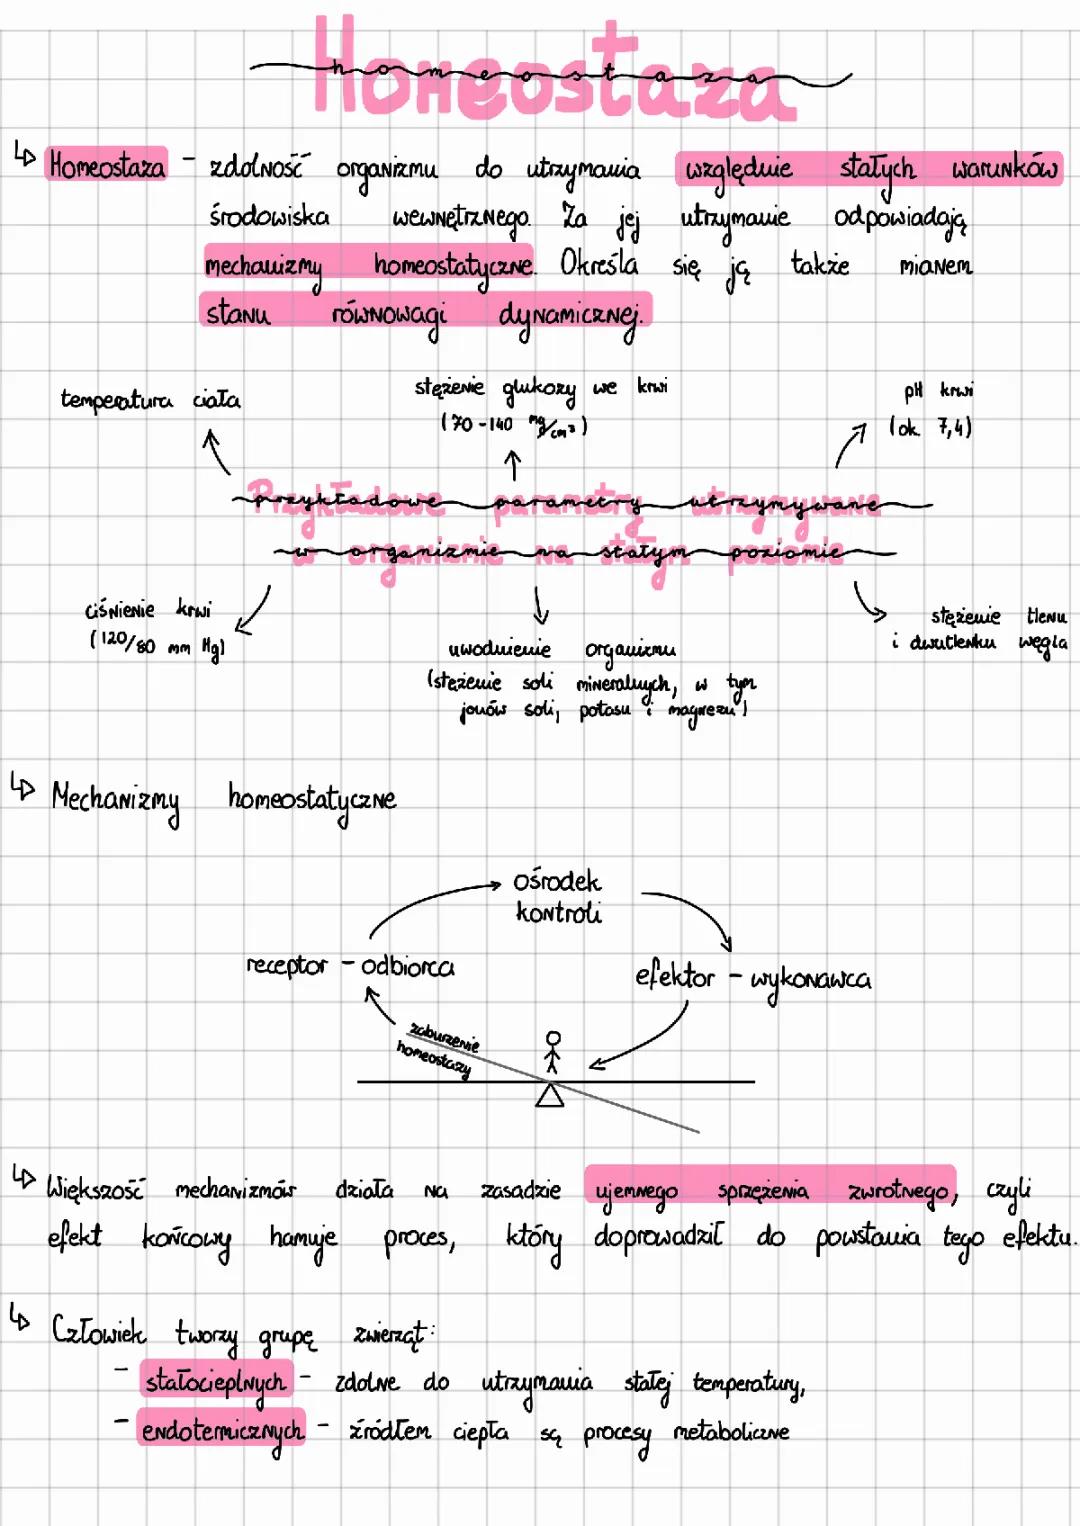 Homeostaza
homeostaza
Homeostaza - zdolność organizmu do utrzymania względnie stałych warunków
środowiska wewnętrznego. Za jej utrzymanie odpowiadają
mechanizmy homeostatyczne. Określa się ją także mianem
stanu równowagi dynamicznej.
temperatura ciała
stężenie glukozy we krwi
(70-140 mg/cm³)
pH krwi
(ok. 7,4)
Przykładowe parametry utrzymywane
w organizmie na stałym poziomie
ciśnienie krwi
(120/80 mm Hg)
uwodnienie organizmu
(stężenie soli mineralnych, w tym
jonów soli, potasu i magnezu)
stężenie tlenu
i dwutlenku węgla
Mechanizmy homeostatyczne
ośrodek
kontroli
receptor - odbiorca
efektor - wykonawca
zaburzenie
homeostazy
Większość mechanizmów działa na zasadzie ujemnego sprzężenia zwrotnego, czyli
efekt końcowy hamuje proces, który doprowadził do powstania tego efektu.
Człowiek tworzy grupę zwierząt:
- stałocieplnych - zdolne do utrzymania stałej temperatury,
- endotermicznych - źródłem ciepła są procesy metaboliczne